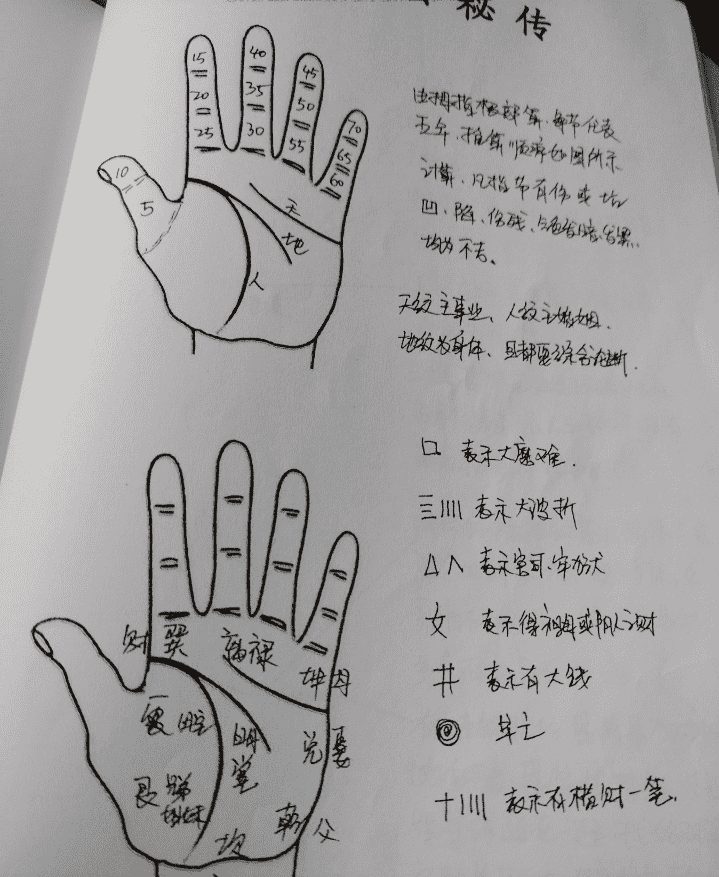 秘传
15
20
25
40
35
30
45
50
55
70
65
60
10
5
天
地
人
由拇指根部算、每节代表
五年、推算顺序如图所示
计算、凡指节有伤或
凹、陷、伤残、
均为不吉。
天纹主事业、人纹主婚姻、
地纹为身体、且都要综合论断.
口 表示大磨难.
三|||| 表示大波折
△ ∧ 表示官司、牢狱
女 表示得祖母或阴人
井 表示有大钱
◎ 早亡
十|||| 表示有横财一笔.
财 巽
福禄
坤 母
震
明堂
兑 妻
艮 兄弟
姐妹
坎
乾 父